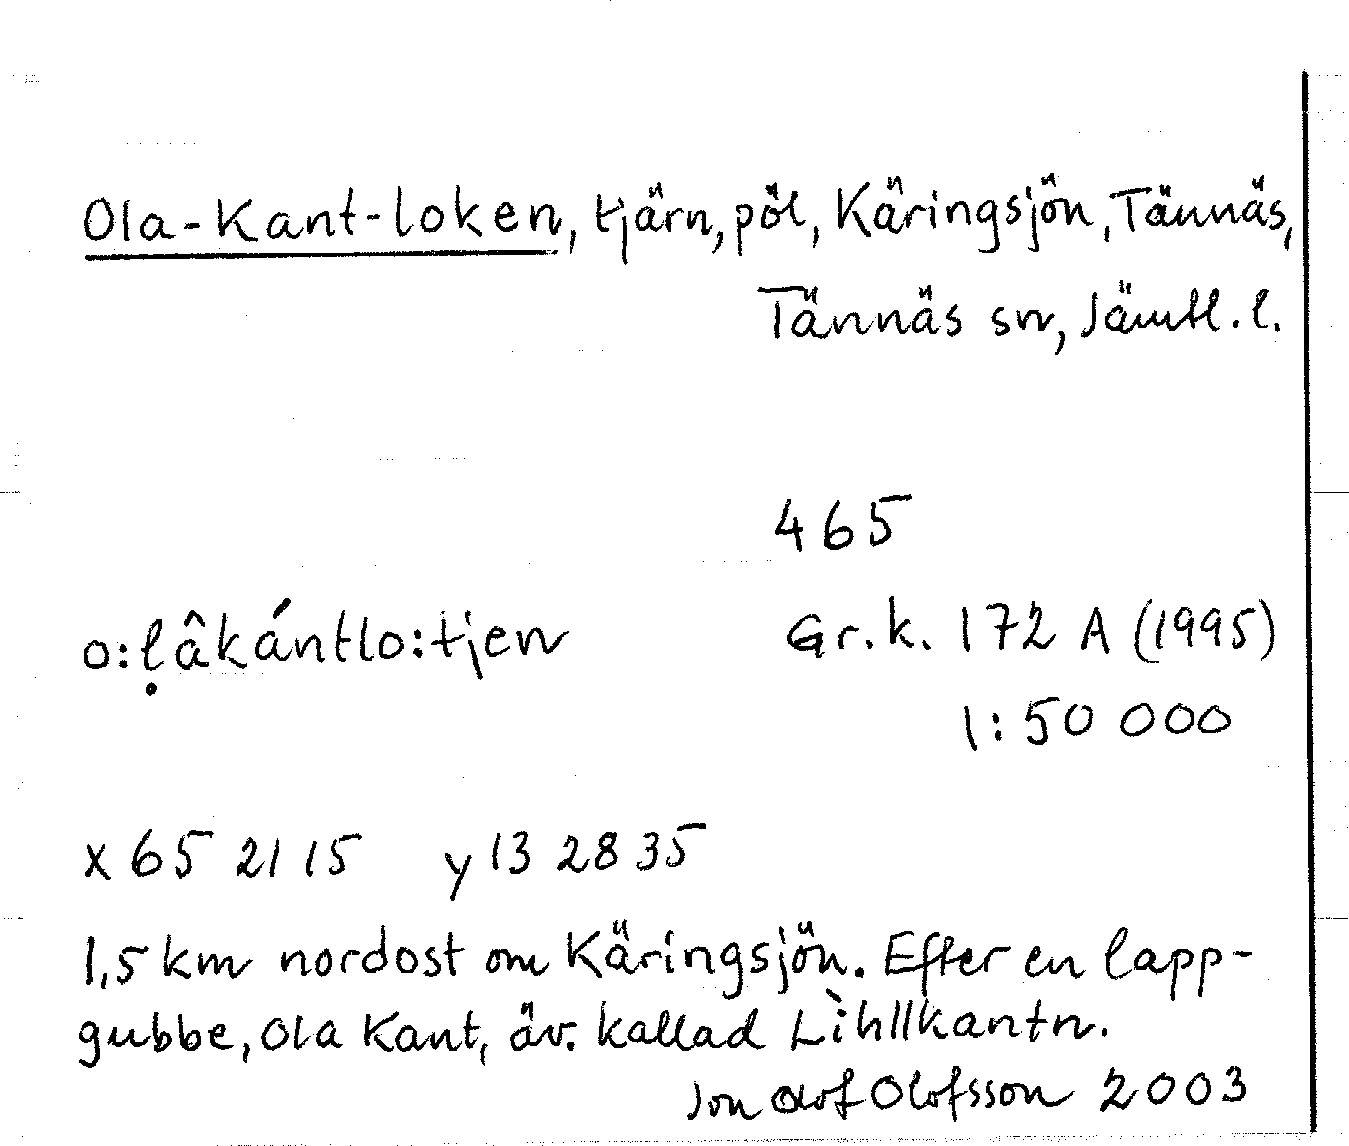 Ola-Kant-loken, tjärn, pöl, Käringsjön, Tännäs,
Tännäs sn, Jämtl. l.
465
o:ḷâkántlo:tjen Gr.k. 172 A (1995)
1:50 000
x 65 21 15 y 13 28 35
1,5 km nordost om Käringsjön. Efter en lapp-
gubbe, Ola Kant, äv. kallad Lìhllkantn.
Jon Olof Olofsson 2003